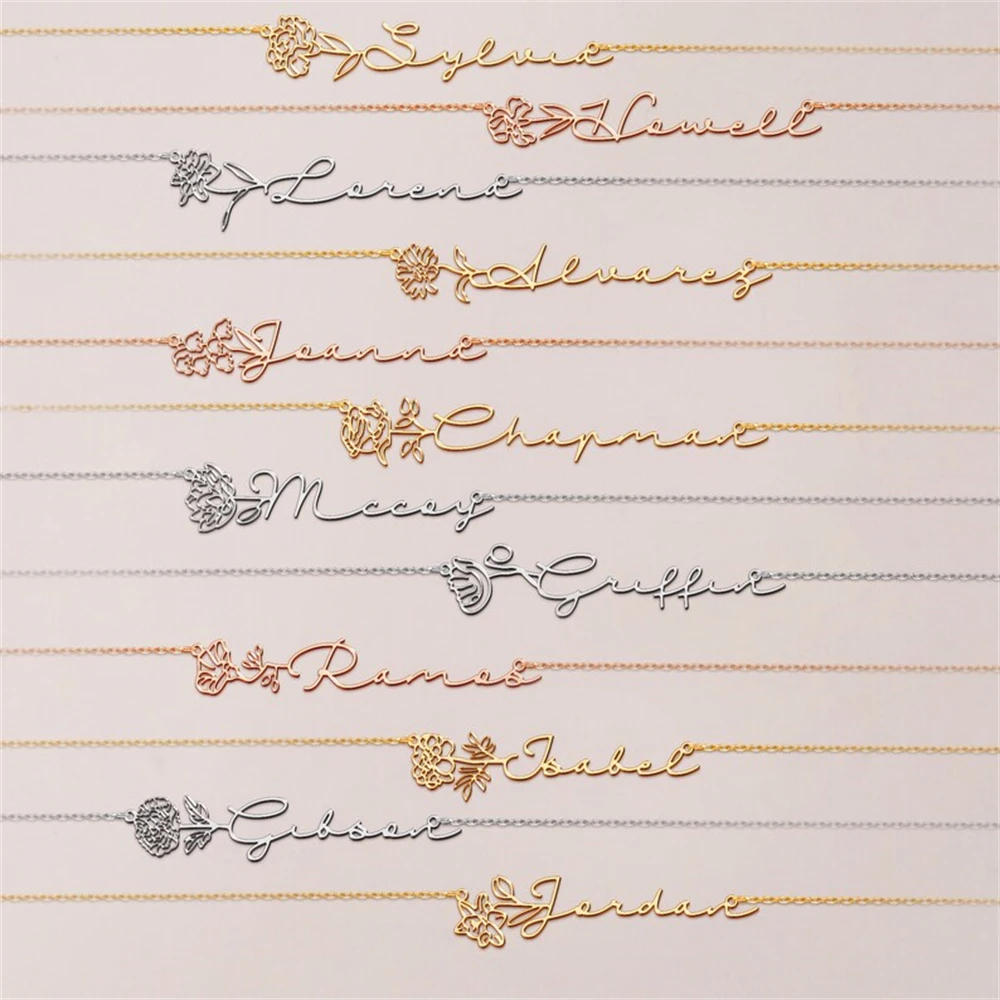 Sylvia
Howell
Lorena
Alvarez
Joanna
Chapman
Mccoy
Griffin
Ramos
Isabel
Gibson
Jordan